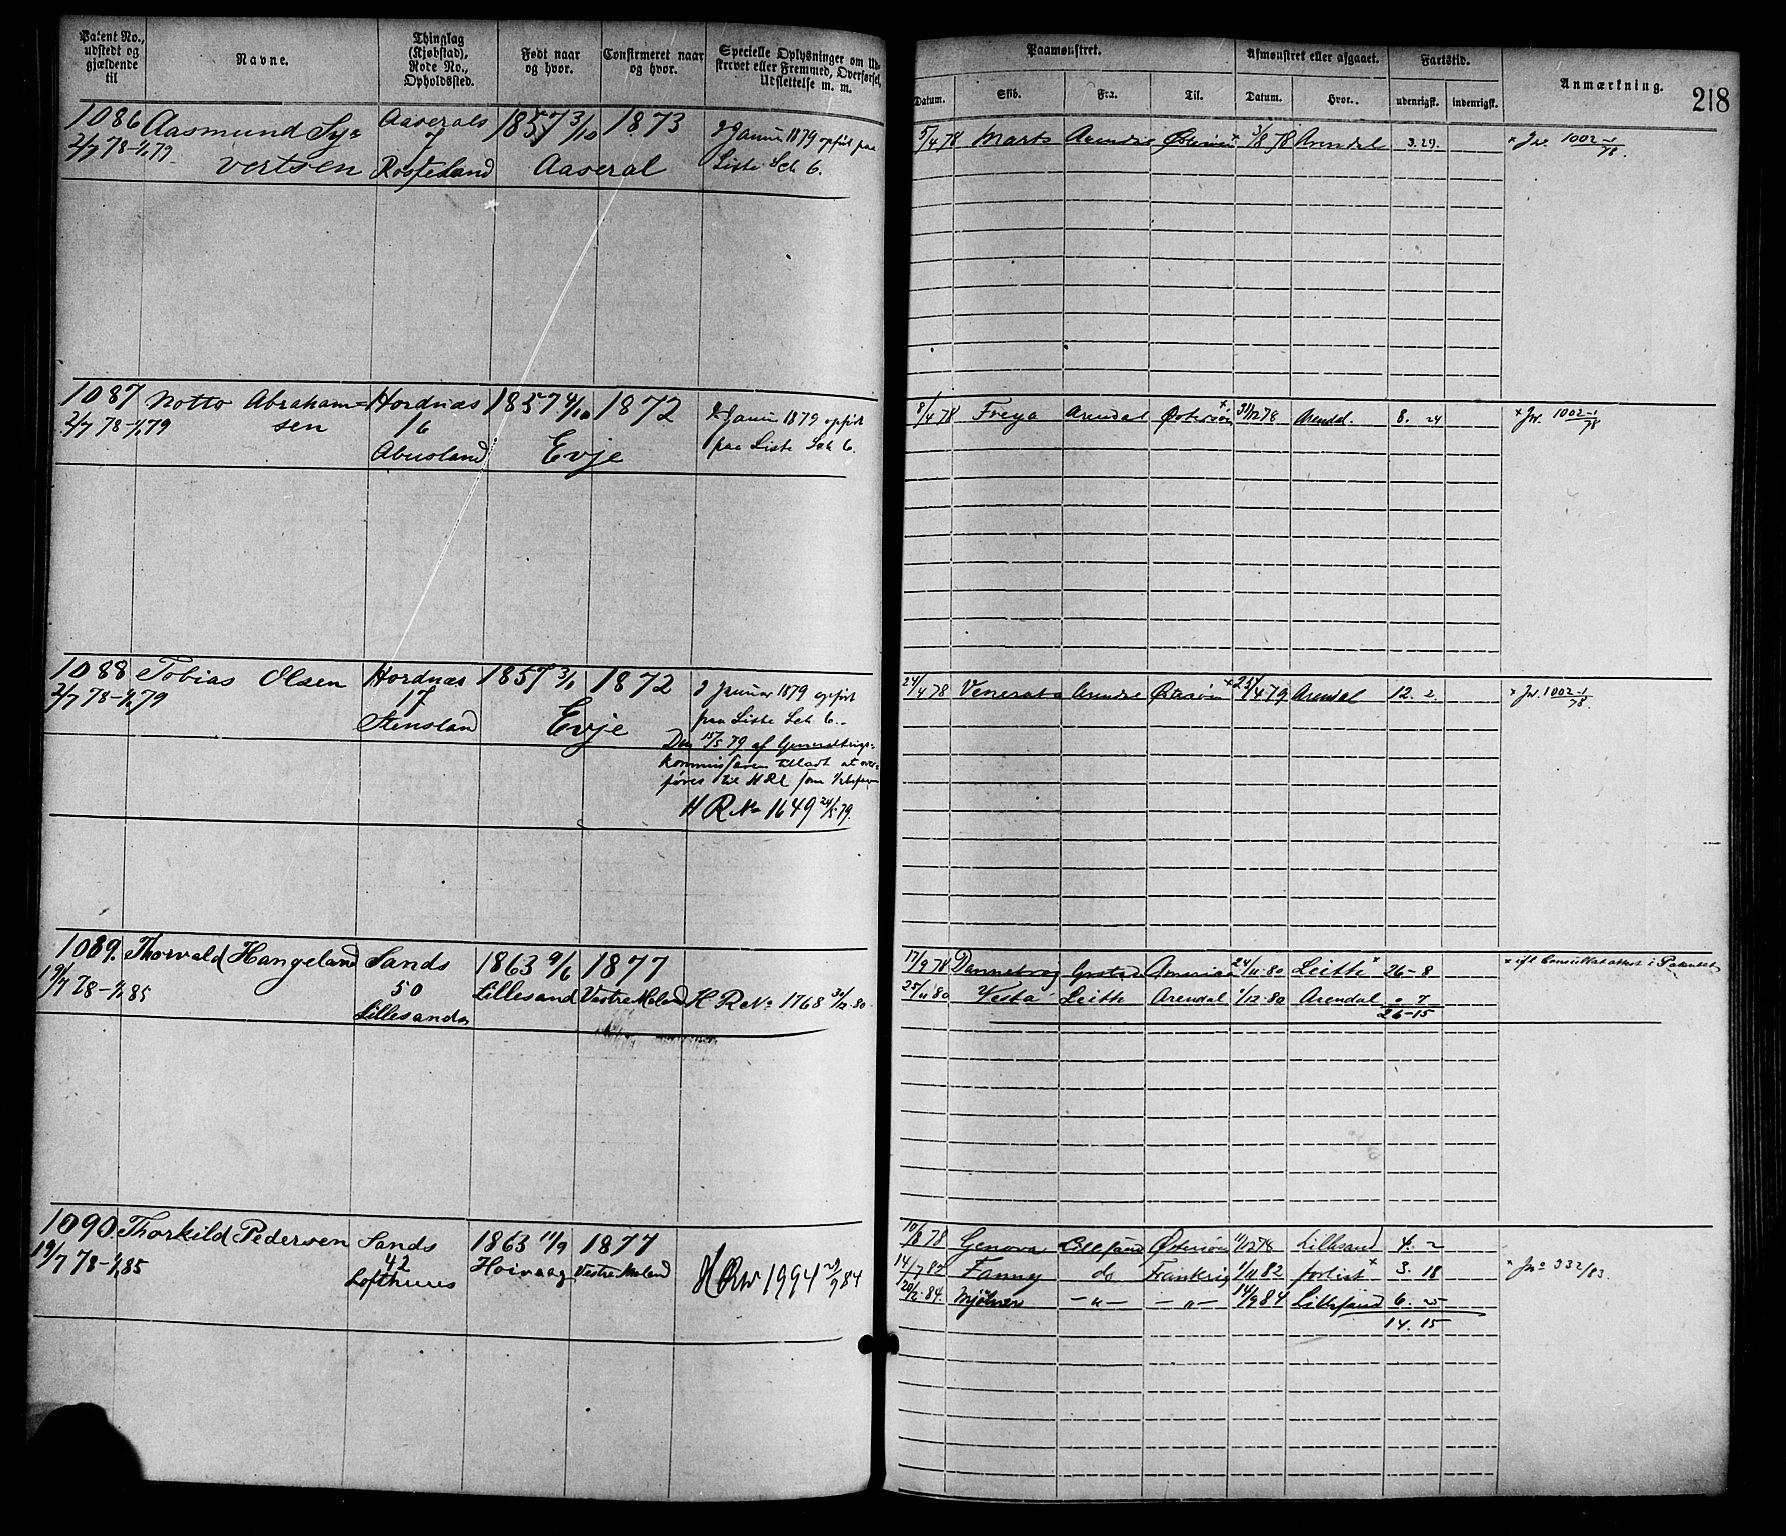 Patent No., udstedt og gjældende til
Navne.
Thinglag (Kjøbstad), Rode No., Opholdssted.
Født naar og hvor.
Confirmeret naar og hvor.
Specielle Oplysninger om Ud-
skrevet eller Fremmed, Overførsel,
Udslettelse m. m.
Paamønstret.
Afmønstret eller afgaaet.
Fartstid.
Anmærkning.
218
Datum. Skib. Fra. Til. Datum. Hvor. udenrigsk. indenrigsk.
1086 Aasmund Sy= Aaserals 1857 3/10 1873 2 Januar 1879 opført paa
2/7 78-1/1 79 vertsen 7 Rosseland Aaseral Liste Ltr 6.
5/4 78 Marts Arendal Østersøen x 3/8 78 Arendal 3. 29. x Jr. 1002-1/78.
1087 Notto Abraham= Hordnæs 1857 4/10 1872 2 Januar 1879 opført
2/7 78-1/1 79 sen 16 paa Liste Ltr 6.
Abusland Evje
8/4 78 Freya Arendal Østersøen x 31/12 78 Arendal. 8. 24 x Jr. 1002-1/78
1088 Tobias Olsen Hordnæs 1857 3/1 1872 2 Januar 1879 opført
2/7 78-1/1 79 17 paa Liste Ltr 6.
Stensland Evje Den 15/5 79 af Generalkrigs-
kommissæren tilladt at over-
føres til HRl som
H R No 1649 24/5 79.
24/4 78 Venerata Arendal Østersøen x 25/4 79 Arendal 12. 2. x Jr. 1002-1/78.
1089. Thorvald Hangeland Sands 1863 9/6 1877
19/7 78-1/1 85 50 Lillesand Vestre Moland H R No 1768 30/12 80.
Lillesand
17/9 78 Dannebrog Grstad Amerika 24/11 80 Leith x 26-8 x ifl Consulatattest i Patentet
25/11 80 Vesta Leith Arendal 1/12 80 Arendal " 7
26-15
1090. Thorkild Pedersen Sands 1863 11/9 1877
19/7 78-1/1 85 42 Høivaag Vestre Moland H R No 1994 29/9 84
Lofthuus
10/8 78 Genova Lillesand Østersøen 11/12 78 Lillesand 4. 2
14/7 82 Fanny do Frankrig 1/11 82 forlist x 3. 18 x Jno 332/83.
20/2 84. Mjølner -"- -"- 14/9 84 Lillesand 6. 25
14. 15